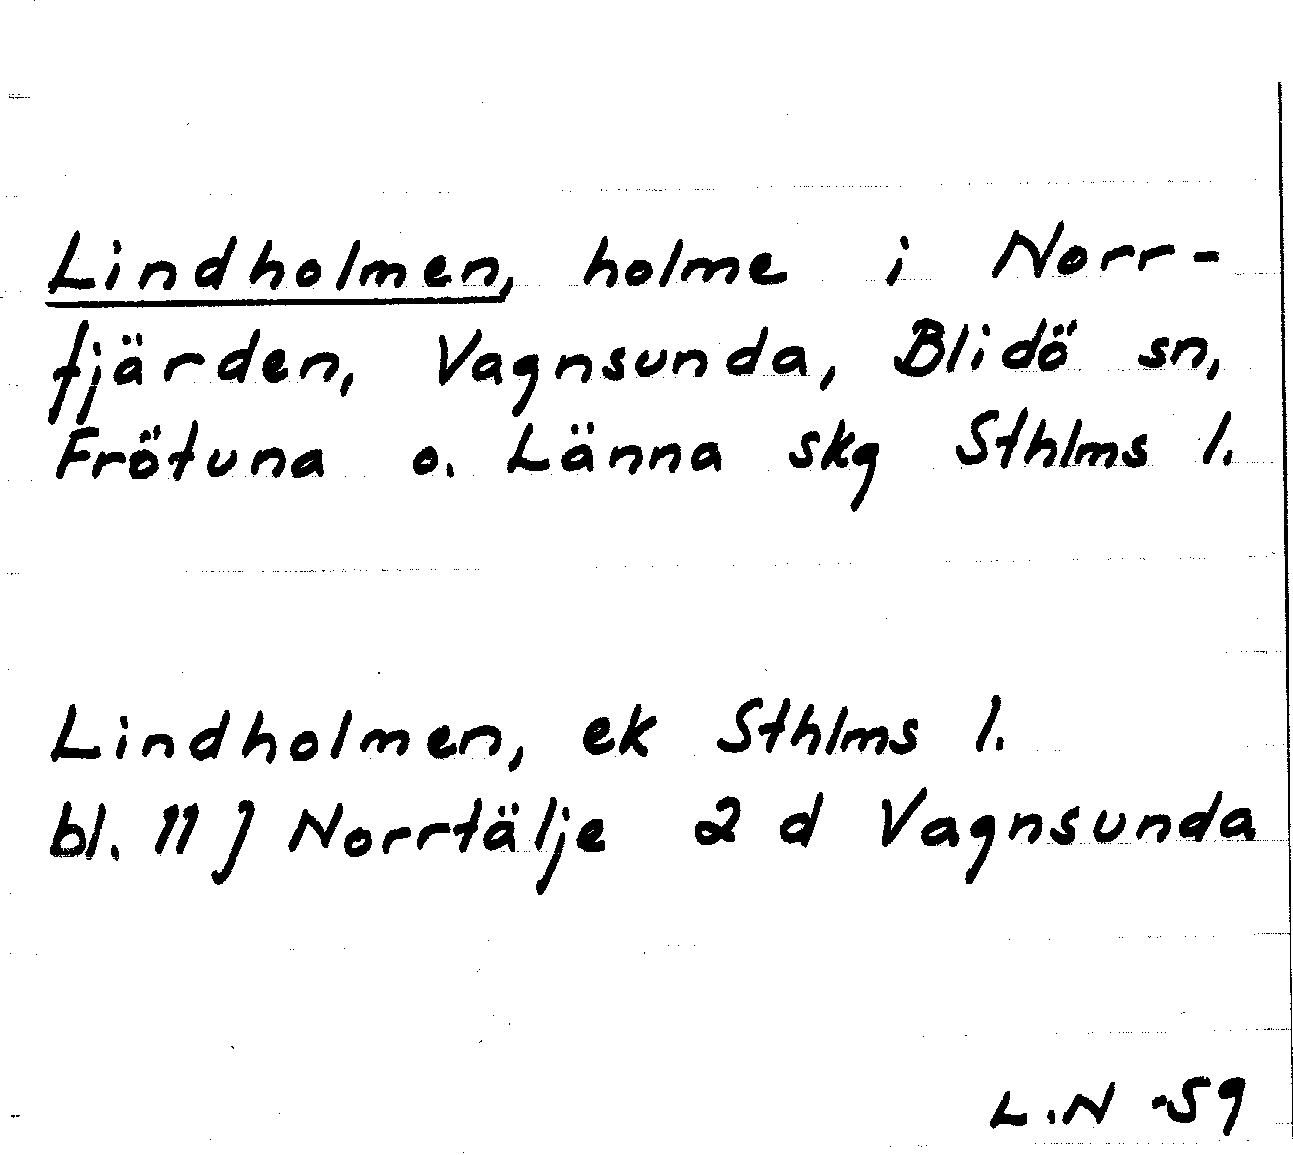 Lindholmen, holme i Norr-
fjärden, Vagnsunda, Blidö sn,
Frötuna o. Länna skg Sthlms l.
Lindholmen, ek Sthlms l.
bl. 11 J Norrtälje 2 d Vagnsunda
L.N -59